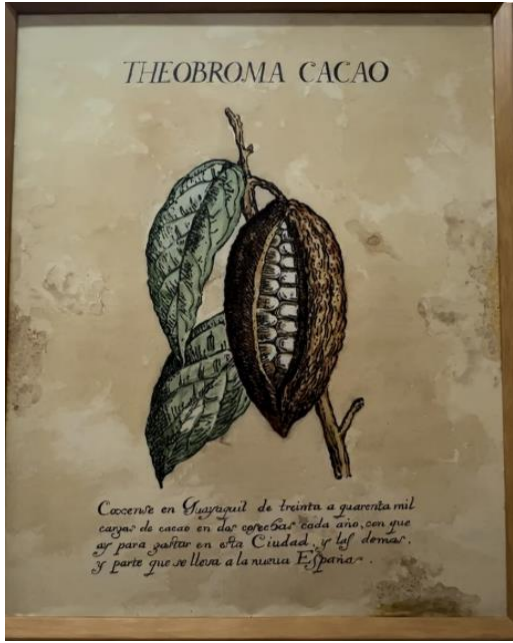 THEOBROMA CACAO
Cocense en Guayaquil de treinta a quarenta mil
cargas de cacao en dos cosechas cada año, con que
ay para gastar en esta Ciudad, y las demas,
y parte que se lleva a la nueua España.